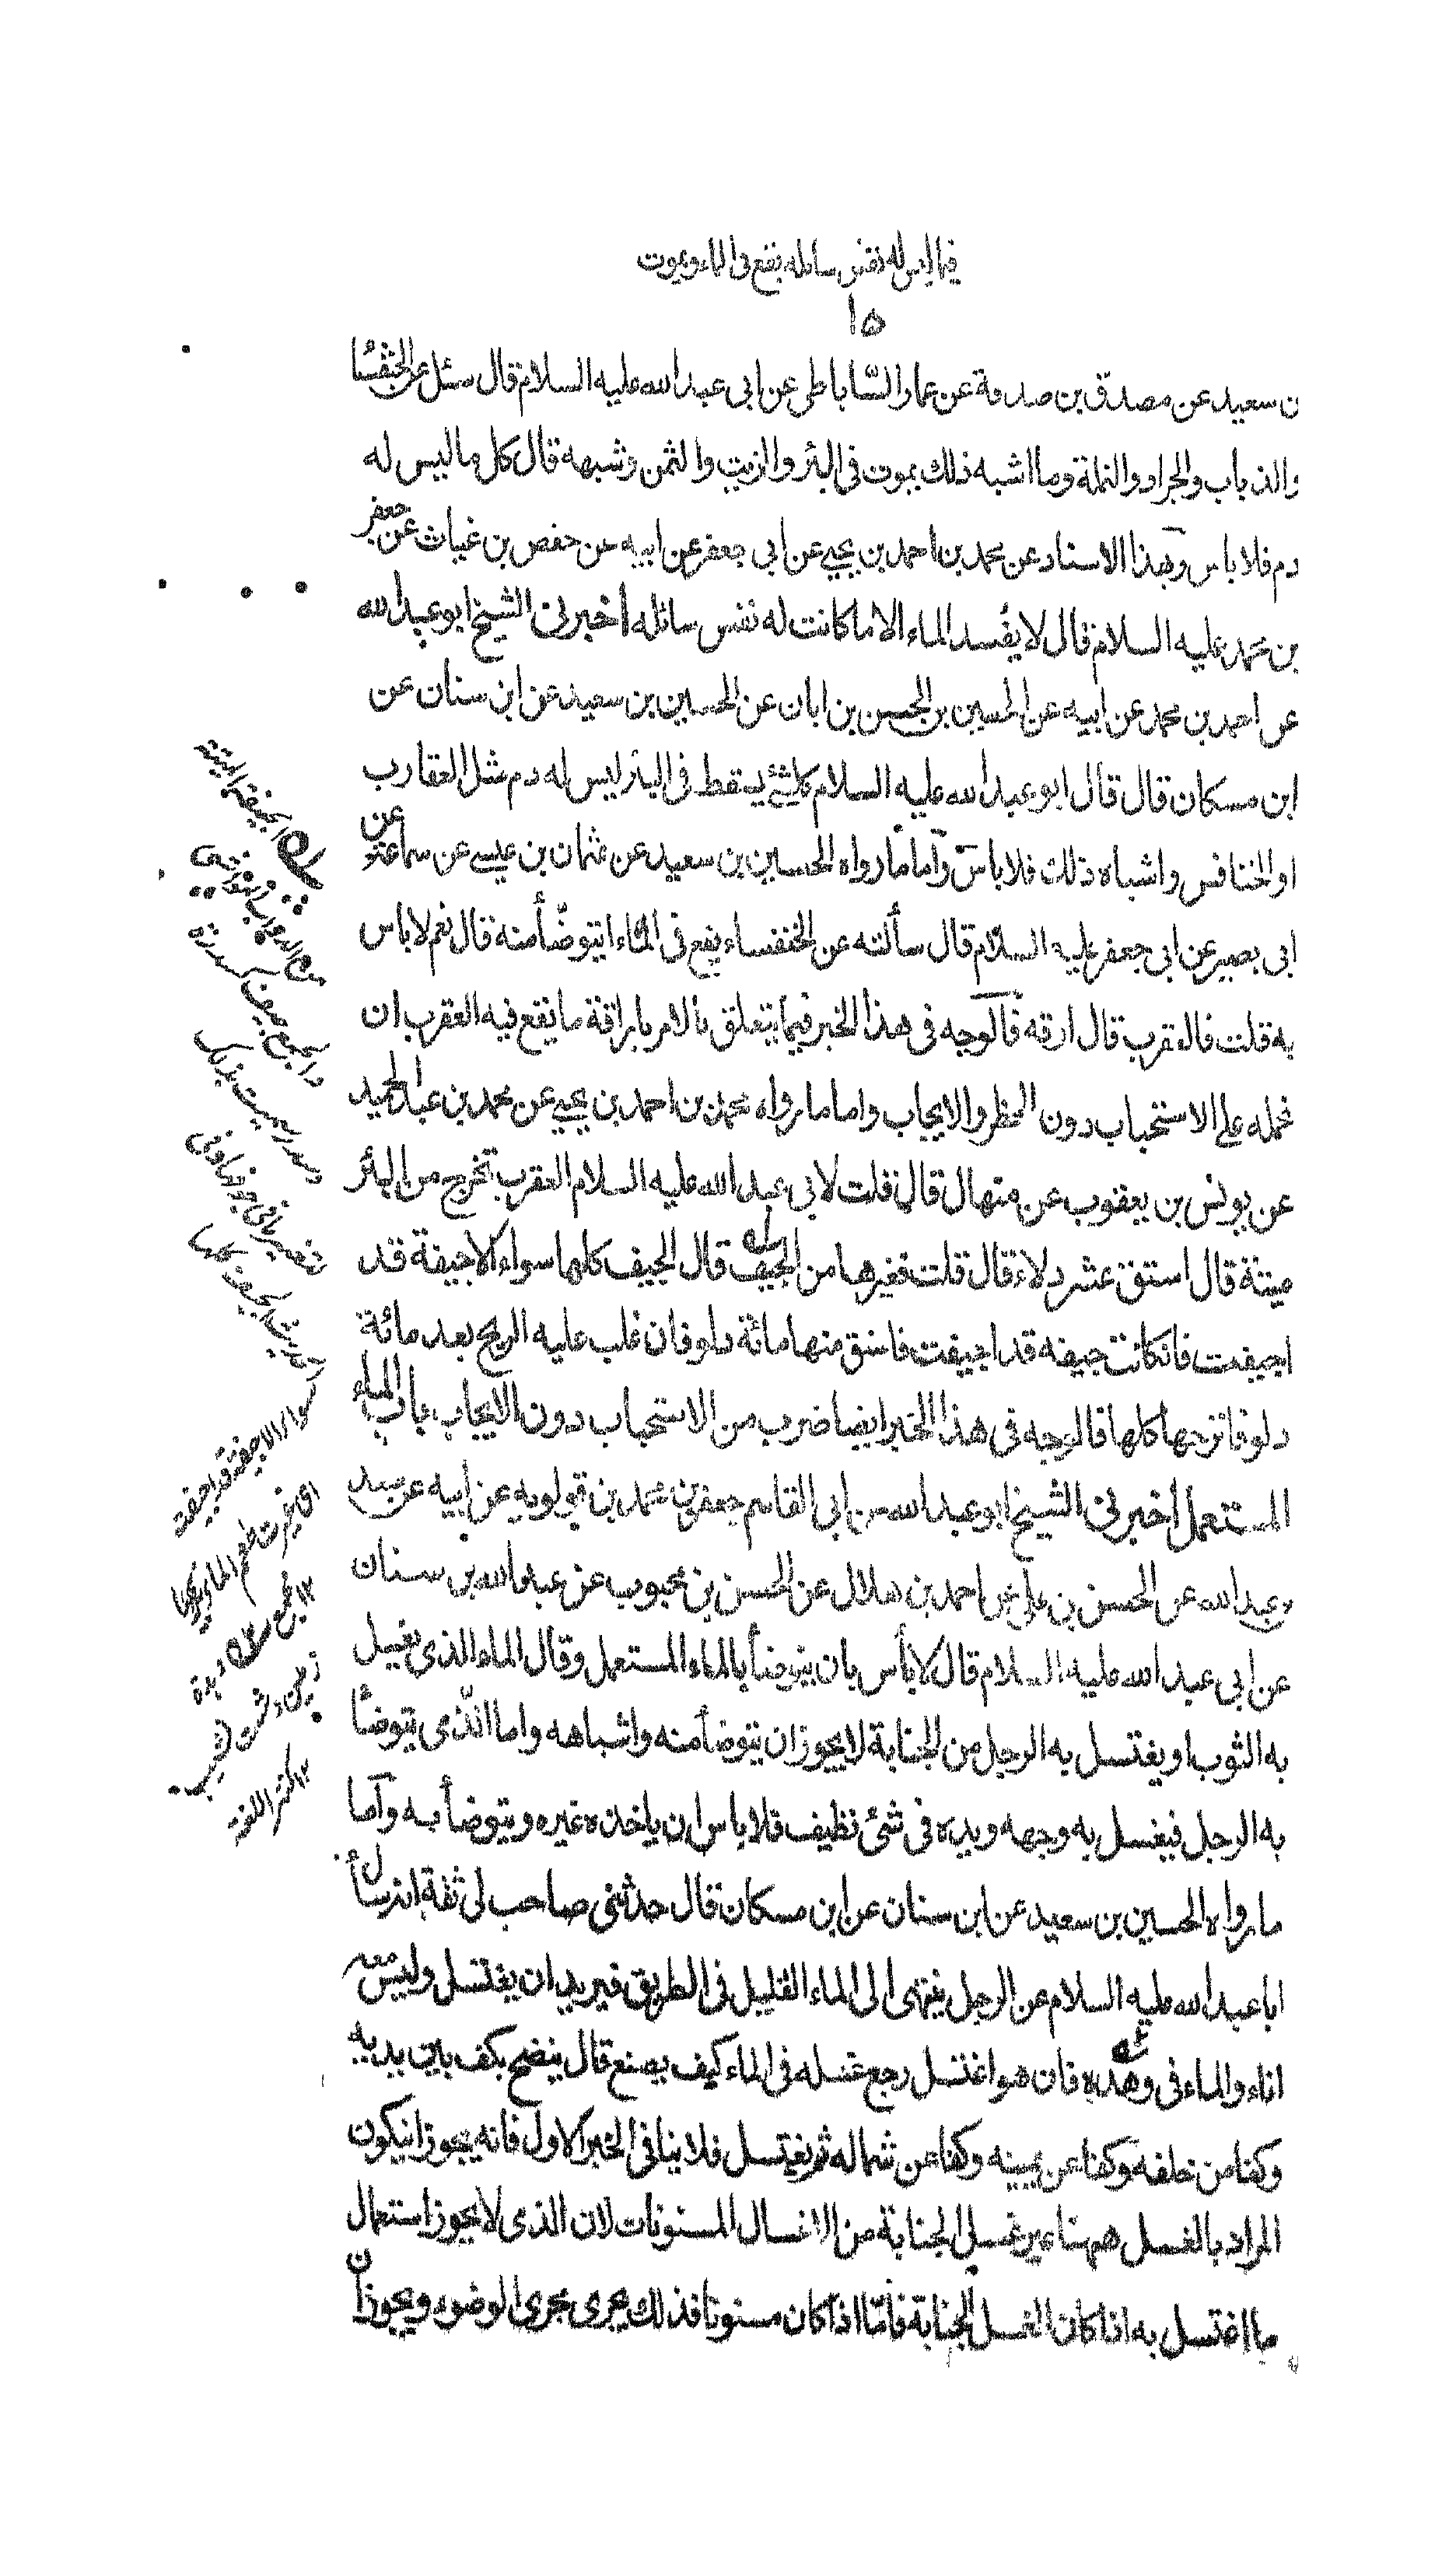 فيما ليس له نفس سائله يقع فى الماء ويموت
١٥
ن سعيد عن مصدق بن صدقة عن عمار الساباطى عن ابى عبد الله عليه السلام قال سئل عن الخنفسا
والذباب والجراد والنملة وما اشبه ذلك يموت فى البئر والزيت والثمن وشبهه قال كل ما ليس له
دم فلا باس وبهذا الاسناد عن محمد بن احمد بن يحيى عن ابى جعفر عن ابيه عن حفص بن غياث عن جعفر
بن محمد عليه السلام قال لا يفسد الماء الا ما كانت له نفس سائله أخبرنى الشيخ ابو عبد الله
عن احمد بن محمد عن ابيه عن الحسين بن الحسن بن ابان عن الحسين بن سعيد عن ابن سنان عن
ابن مسكان قال قال ابو عبد الله عليه السلام كل شئ يسقط فى البئر ليس له دم مثل العقارب
او الخنافس واشباه ذلك فلا باس وآما ما رواه الحسين بن سعيد عن عثمان بن عيسى عن سماعة عن
ابى بصير عن ابى جعفر عليه السلام قال سألته عن الخنفساء يقع فى الماء ايتوضأ منه قال نعم لا باس
به قلت فالعقرب قال ارقه فآلوجه فى هذا الخبر فيما يتعلق بالامر باراقة ما يقع فيه العقرب ان
نحمله على الاستحباب دون الحظر والايجاب واما ما رواه محمد بن احمد بن يحيى عن محمد بن عبد الحميد
عن يونس بن يعقوب عن منهال قال قلت لابى عبد الله عليه السلام العقرب تخرج من البئر
ميتة قال استق عشر دلاء قال قلت فغيرها من الجيف قال الجيف كلها سواء الا جيفة قد
اجيفت فانكانت جيفه قد اجيفت فاستق منها مائة دلو فان غلب عليه الريح بعد مائة
دلو فانزحها كلها فالوجه فى هذا الخبر ايضا ضرب من الاستحباب دون الايجاب باب الماء
المستعمل أخبرنى الشيخ ابو عبد الله عن ابى القاسم جعفر بن محمد بن قولويه عن ابيه عن سعد
بن عبد الله عن الحسن بن على عن احمد بن هلال عن الحسن بن محبوب عن عبد الله بن سنان
عن ابى عبد الله عليه السلام قال لا بأس بان يتوضأ بالماء المستعمل وقال الماء الذى يغسل
به الثوب او يغتسل به الرجل من الجنابة لا يجوز ان يتوضأ منه واشباهه واما الذى يتوضأ
به الرجل فيغسل به وجهه ويده فى شئ نظيف فلا باس ان ياخذه غيره ويتوضأ به وآما
ما رواه الحسين بن سعيد عن ابن سنان عن ابن مسكان قال حدثنى صاحب لى ثقة انه سأل
ابا عبد الله عليه السلام عن الرجل ينتهى الى الماء القليل فى الطريق فيريد ان يغتسل وليس معه
اناء والماء فى وهده فان هو اغتسل رجع غسله فى الماء كيف يصنع قال ينضح بكف بين يديه
وكفا من خلفه وكفا عن يمينه وكفا عن شماله ثم يغتسل فلا ينافى الخبر الاول فانه يجوز انيكون
المراد بالغسل ههنا غير غسل الجنابة من الاغسال المسنونات لان الذى لا يجوز استعمال
ما اغتسل به اذا كان الغسل الجنابة فأما اذا كان مسنونا فذلك يجرى مجرى الوضوء ويجوز ان
الجيفة الميتة
سواء الا جيفة قد اجيفت
اى غيرت طعم الماء او ريحها
١٢ كنز اللغة